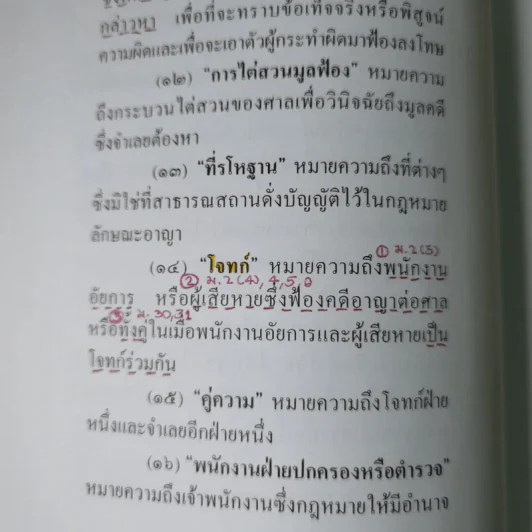 กล่าวหา เพื่อที่จะทราบข้อเท็จจริงหรือพิสูจน์
ความผิดและเพื่อจะเอาตัวผู้กระทำผิดมาฟ้องลงโทษ
(๑๒) “การไต่สวนมูลฟ้อง” หมายความ
ถึงกระบวนไต่สวนของศาลเพื่อวินิจฉัยถึงมูลคดี
ซึ่งจำเลยต้องหา
(๑๓) “ที่รโหฐาน” หมายความถึงที่ต่างๆ
ซึ่งมิใช่ที่สาธารณสถานดั่งบัญญัติไว้ในกฎหมาย
ลักษณะอาญา
① ม.2(5)
(๑๔) “โจทก์” หมายความถึงพนักงาน
② ม.2(4),4,5,6
อัยการ หรือผู้เสียหายซึ่งฟ้องคดีอาญาต่อศาล
③ ม.30,31
หรือทั้งคู่ในเมื่อพนักงานอัยการและผู้เสียหายเป็น
โจทก์ร่วมกัน
(๑๕) “คู่ความ” หมายความถึงโจทก์ฝ่าย
หนึ่งและจำเลยอีกฝ่ายหนึ่ง
(๑๖) “พนักงานฝ่ายปกครองหรือตำรวจ”
หมายความถึงเจ้าพนักงานซึ่งกฎหมายให้มีอำนาจ